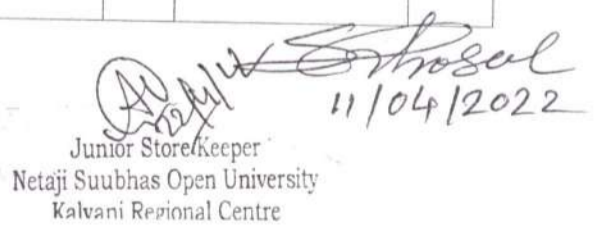 11/04/2022
Junior Store Keeper
Netaji Suubhas Open University
Kalyani Regional Centre